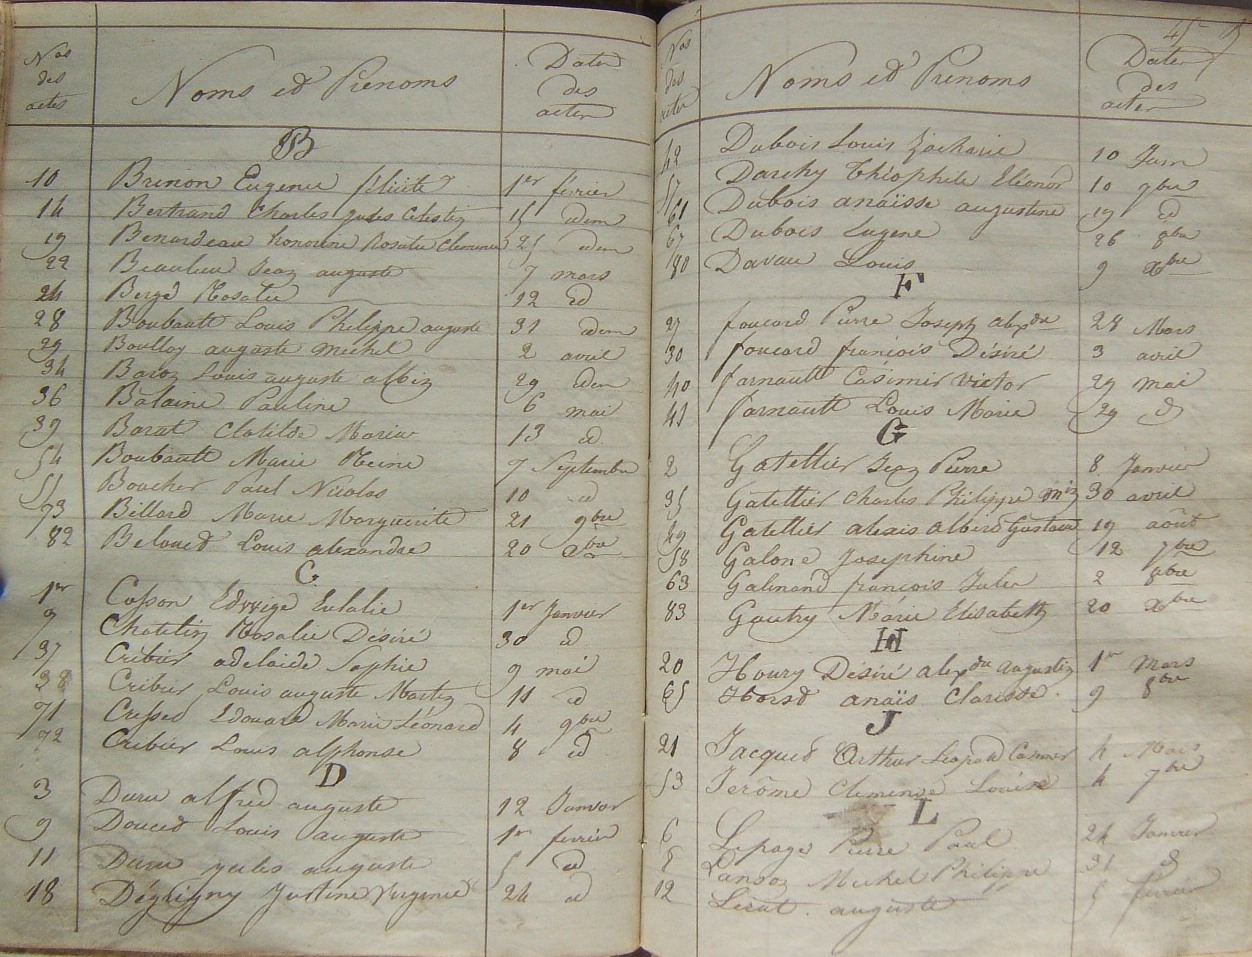 Nos des actes | Noms et Prénoms | Dates des actes
B
10 Brinon Eugenie félicité 1er février
14 Bertrand Charles jules Célestin 15 idem
19 Benardeau honorine Rosalie Clemence 25 idem
22 Beaulieu Jean auguste 7 mars
24 Bergé Rosalie 12 id
28 Boubault Louis Philippe auguste 31 idem
29 Boulloy auguste michel 2 avril
34 Baron Louis auguste albin 29 idem
36 Balaine Pauline 6 mai
39 Barat Clotilde Maria 13 id
54 Boubault Marie Reine 7 Septembre
55 Boucher Paul Nicolas 10 id
73 Billard Marie Marguerite 21 9bre
82 Beloued Louis alexandre 20 Xbre
C
1er Cosson Edwige Eulalie 1er Janvier
7 Chatelin Rosalie Desiré 30 id
37 Cribier adelaide Sophie 9 mai
38 Cribier Louis auguste Martin 11 id
71 Edouard Marie Léonard 4 9bre
72 Cribier Louis alphonse 8 id
D
3 Duru alfred auguste 12 Janvier
9 Doucet Louis auguste 1er février
11 Duru jules auguste 5 id
18 Dégrigny Justine Virginie 24 id
45
Nos des actes | Noms et Prénoms | Dates des actes
42 Dubois Louis Zacharie 10 Juin
57 Darchy Théophile Eléonor 10 7bre
61 Dubois anaïsse augustine 19 id
67 Dubois Eugene 26 8bre
80 Davau Louis 9 Xbre
F
27 foucard Pierre Joseph alexdre 28 Mars
30 foucard francois Désiré 3 avril
40 farnault Casimir victor 29 mai
41 farnault Louis Marie 29 d
G
2 Gatellier Jean Pierre 8 Janvier
35 Gatellier charles Philippe 30 avril
49 Gatellier alexis albert Gustave 19 août
58 Galone Josephine 12 7bre
63 Galinand francois Jules 2 8bre
83 Gautry Marie Elisabeth 20 Xbre
H
20 Houry Désiré alexdre augustin 1er mars
65 anaïs Clarisse 9 8bre
J
21 Jacques Arthur Léopold Casimir 4 Mars
53 Jerôme Clemence Louise 4 7bre
L
6 Lepage Pierre Paul 24 Janvier
8 Michel Philippe 31 d
12 auguste 5 février